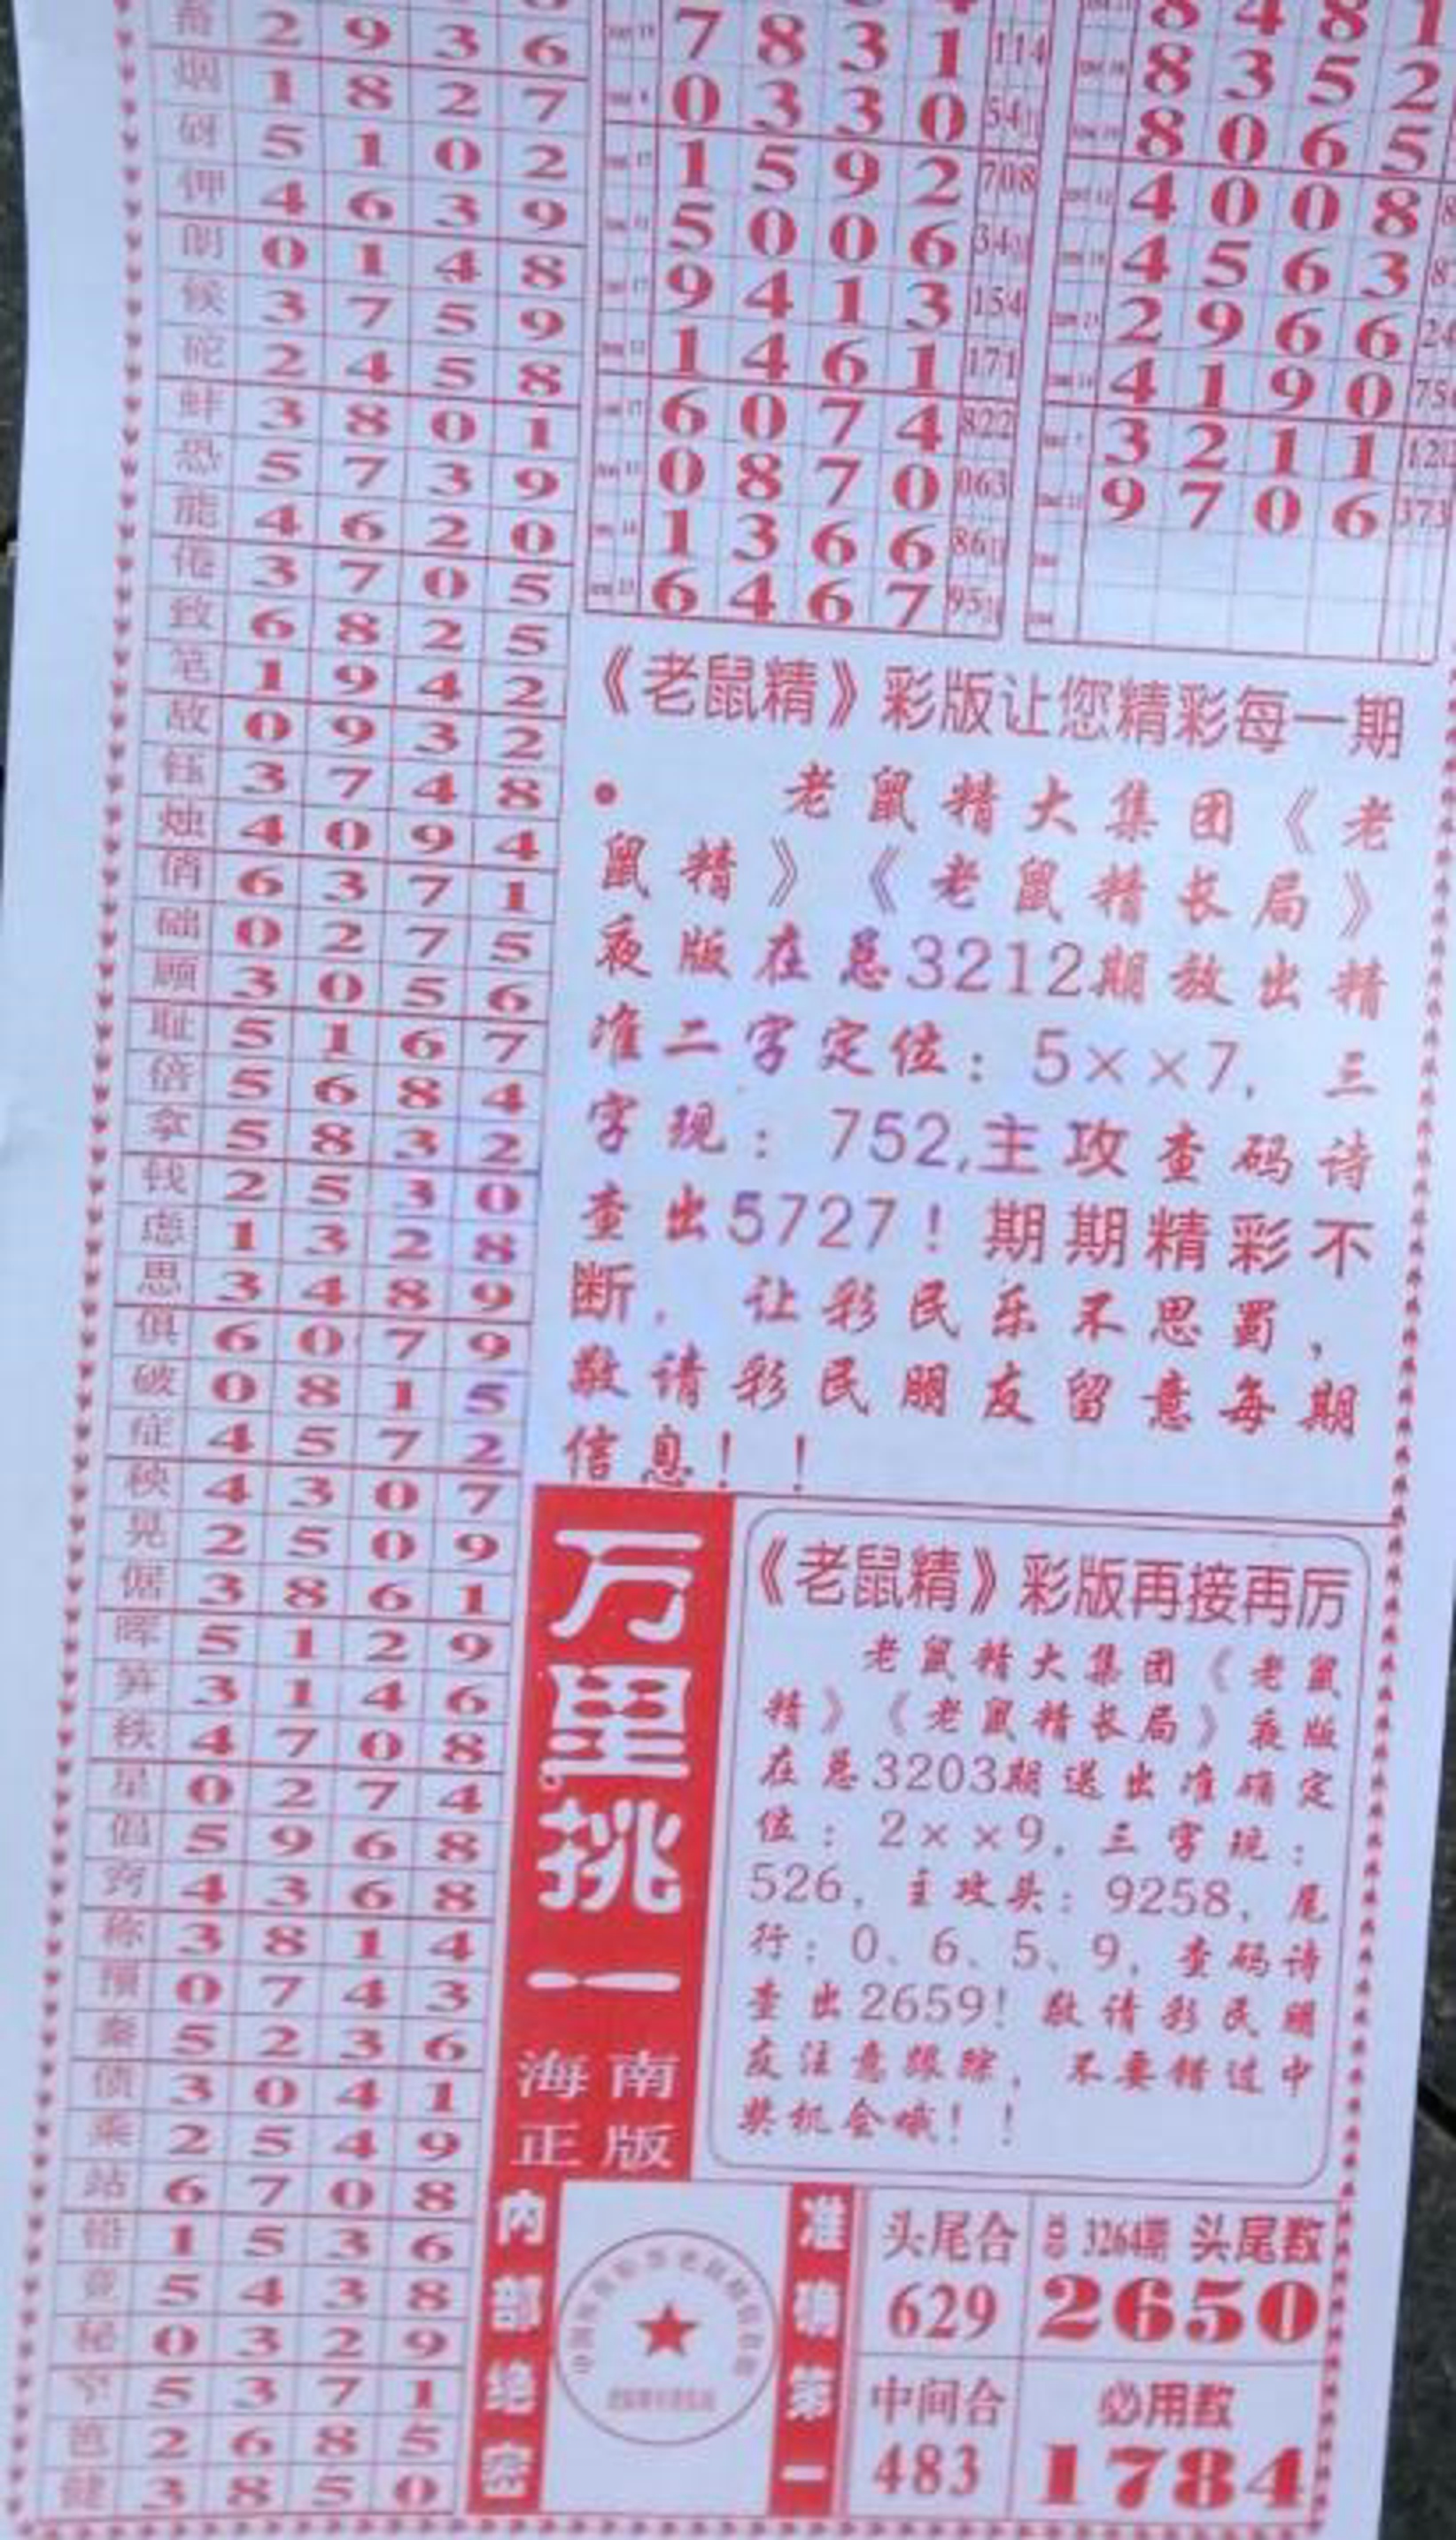 2 9 3 6
烟 1 8 2 7
砑 5 1 0 2
钾 4 6 3 9
朗 0 1 4 8
候 3 7 5 9
砣 2 4 5 8
蚌 3 8 0 1
恐 5 7 3 9
能 4 6 2 0
倦 3 7 0 5
致 6 8 2 5
笔 1 9 4 2
故 0 9 3 2
钰 3 7 4 8
烛 4 0 9 4
俏 6 3 7 1
础 0 2 7 5
顾 3 0 5 6
耻 5 1 6 7
倍 5 6 8 4
拿 5 8 3 2
钱 2 5 3 0
虑 1 3 2 8
思 3 4 8 9
俱 6 0 7 9
破 0 8 1 5
症 4 5 7 2
秧 4 3 0 7
晃 2 5 0 9
倨 3 8 6 1
晖 5 1 2 9
笋 3 1 4 6
秩 4 7 0 8
星 0 2 7 4
倡 5 9 6 8
窍 4 3 6 8
称 3 8 1 4
预 0 7 4 3
秦 5 2 3 6
债 3 0 4 1
乘 2 5 4 9
站 6 7 0 8
铅 1 5 3 6
5 4 3 8
秘 0 3 2 9
5 3 7 1
笆 2 6 8 5
健 3 8 5 0
7 8 3 1 114
0 3 3 0 54
1 5 9 2 708
5 0 0 6 34
9 4 1 3 154
1 4 6 1 171
6 0 7 4 822
0 8 7 0 063
1 3 6 6 86
6 4 6 7 95
8 4 8 1
8 3 5 2
8 0 6 5
4 0 0 8
4 5 6 3
2 9 6 6
4 1 9 0 75
3 2 1 1 12
9 7 0 6 373
《老鼠精》彩版让您精彩每一期
● 老鼠精大集团《老
鼠精》《老鼠精长局》
夜版在总3212期放出精
准二字定位：5××7，三
字现：752,主攻查码诗
查出5727！期期精彩不
断，让彩民乐不思蜀，
敬请彩民朋友留意每期
信息！！
万里挑一
海南
正版
《老鼠精》彩版再接再厉
老鼠精大集团《老鼠
精》《老鼠精长局》夜版
在总3203期送出准确定
位：2××9，三字现：
526，主攻头：9258，尾
行：0、6、5、9，查码诗
查出2659！敬请彩民朋
友注意跟踪，不要错过中
奖机会哦！！
内部绝密
准确第一
头尾合
629
3264期 头尾数
2650
中间合
483
必用数
1784